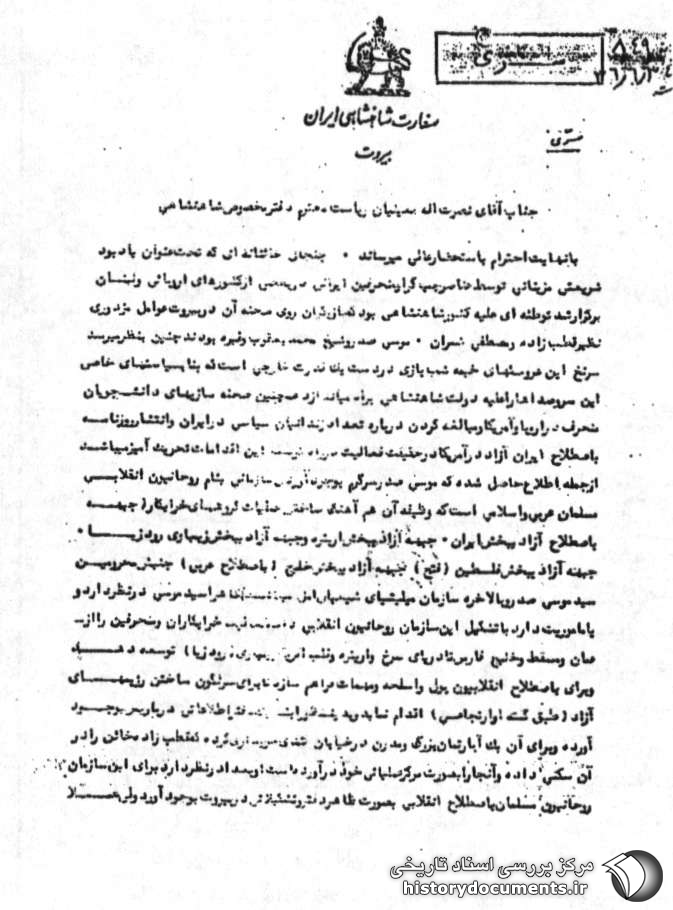 سری
سفارت شاهنشاهی ایران
بیروت
مستقیم
جناب آقای نصرت اله معینیان ریاست محترم دفتر مخصوص شاهنشاهی
بانهایت احترام باستحضارعالی میرساند ۰ جنجالی که تحت عنوان یاد بود
توسط عناصر چپ گرا ومنحرفین ایرانی در بعضی ازکشورهای اروپائی ولبنان
برگزارشد توطئه ای علیه کشورشاهنشاهی بود که بازیگران روی صحنه آن دربیروت عوامل مزدوری
نظیرقطب زاده ومصطفی چمران ۰ موسی صدر وشیخ محمد یعقوب وغیره بودند چنین بنظرمیرسد
سرنخ این عروسکهای خیمه شب بازی دردست یک قدرت خارجی است که بنابسیاستهای خاصی
این سروصداهاراعلیه دولت شاهنشاهی براه میاندازد همچنین صحنه سازیهای دانشجویان
منحرف دراروپا وآمریکا ومبالغه کردن درباره تعداد زندانیان سیاسی درایران وانتشارروزنامه
باصطلاح ایران آزاد درآمریکا درحقیقت فعالیت این اقدامات تحریک آمیزمیباشد
ازجمله اطلاع حاصل شده که موسی صدر سرگرم بوجود آوردن سازمانی بنام روحانیون انقلابی
مسلمان عربی واسلامی است که وظیفه آن هم آهنگ ساختن عملیات گروههای خرابکار ( جبهه
باصطلاح آزاد یبخش ایران ۰ جبهه آزاد یبخش اریتره وجبهه آزاد یبخش زیمبابوی رودزیا ۰
جبهه آزاد یبخش فلسطین ( فتح ) جبهه آزاد یبخش خلیج ( باصطلاح عربی ) جنبش محرومین
سید موسی صدر وبالاخره سازمان میلیشیای شیعیان امل میباشد ظاهرا سید موسی درنظردارد و
یا ماموریت دارد با تشکیل این سازمان روحانیون انقلابی دامنه خرابکاران ومنحرفین را از
عمان ومسقط وخلیج فارس تادریای سرخ واریتره رودزیا ) توسعه دهد
وبرای باصطلاح انقلابیون پول واسلحه ومهمات فراهم سازد تا برای سرنگون ساختن رژیمهای
آزاد اقدام نمایند بدینمنظور دفتر اطلاعاتی درپاریس بوجود
آورده وبرای آن یک آپارتمان بزرگ ومدرن درخیابان خریداری کرده که قطب زاده خائن را در
آن سکنی داده وآنجارا بصورت مرکزعملیاتی خود درآورده است وبعدا درنظردارد برای این سازمان
روحانیون مسلمان باصطلاح انقلابی بصورت ظاهر دفتر وتشکیلاتی دربیروت بوجود آورد ولی عملا
مرکز بررسی اسناد تاریخی
historydocuments.ir